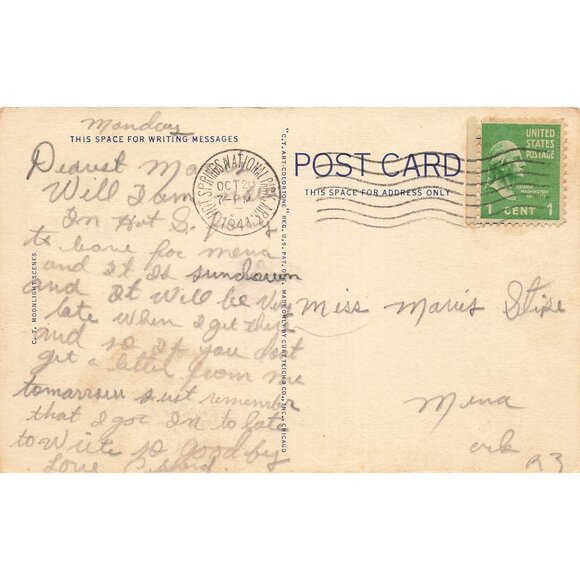 Monday
THIS SPACE FOR WRITING MESSAGES
Dearest
Will I am
In Hot S.
to leave for mena
and it Is sundown
and It will be very
late when I get there
and so If you dont
get a letter from me
tomarrow Just remember
that I got In to late
to Write so good by
Love
C. T. MOONLIGHT SCENES
"C.T. ART-COLORTONE" REG. U.S. PAT. OFF. MADE ONLY BY CURT TEICH & CO., INC., CHICAGO
HOT SPRINGS NATIONAL PARK, ARK.
OCT
7 PM
1941
POST CARD
THIS SPACE FOR ADDRESS ONLY
UNITED
STATES
POSTAGE
GEORGE
WASHINGTON
1 CENT 1
Miss Maris Stipe
Mena
ark
R3